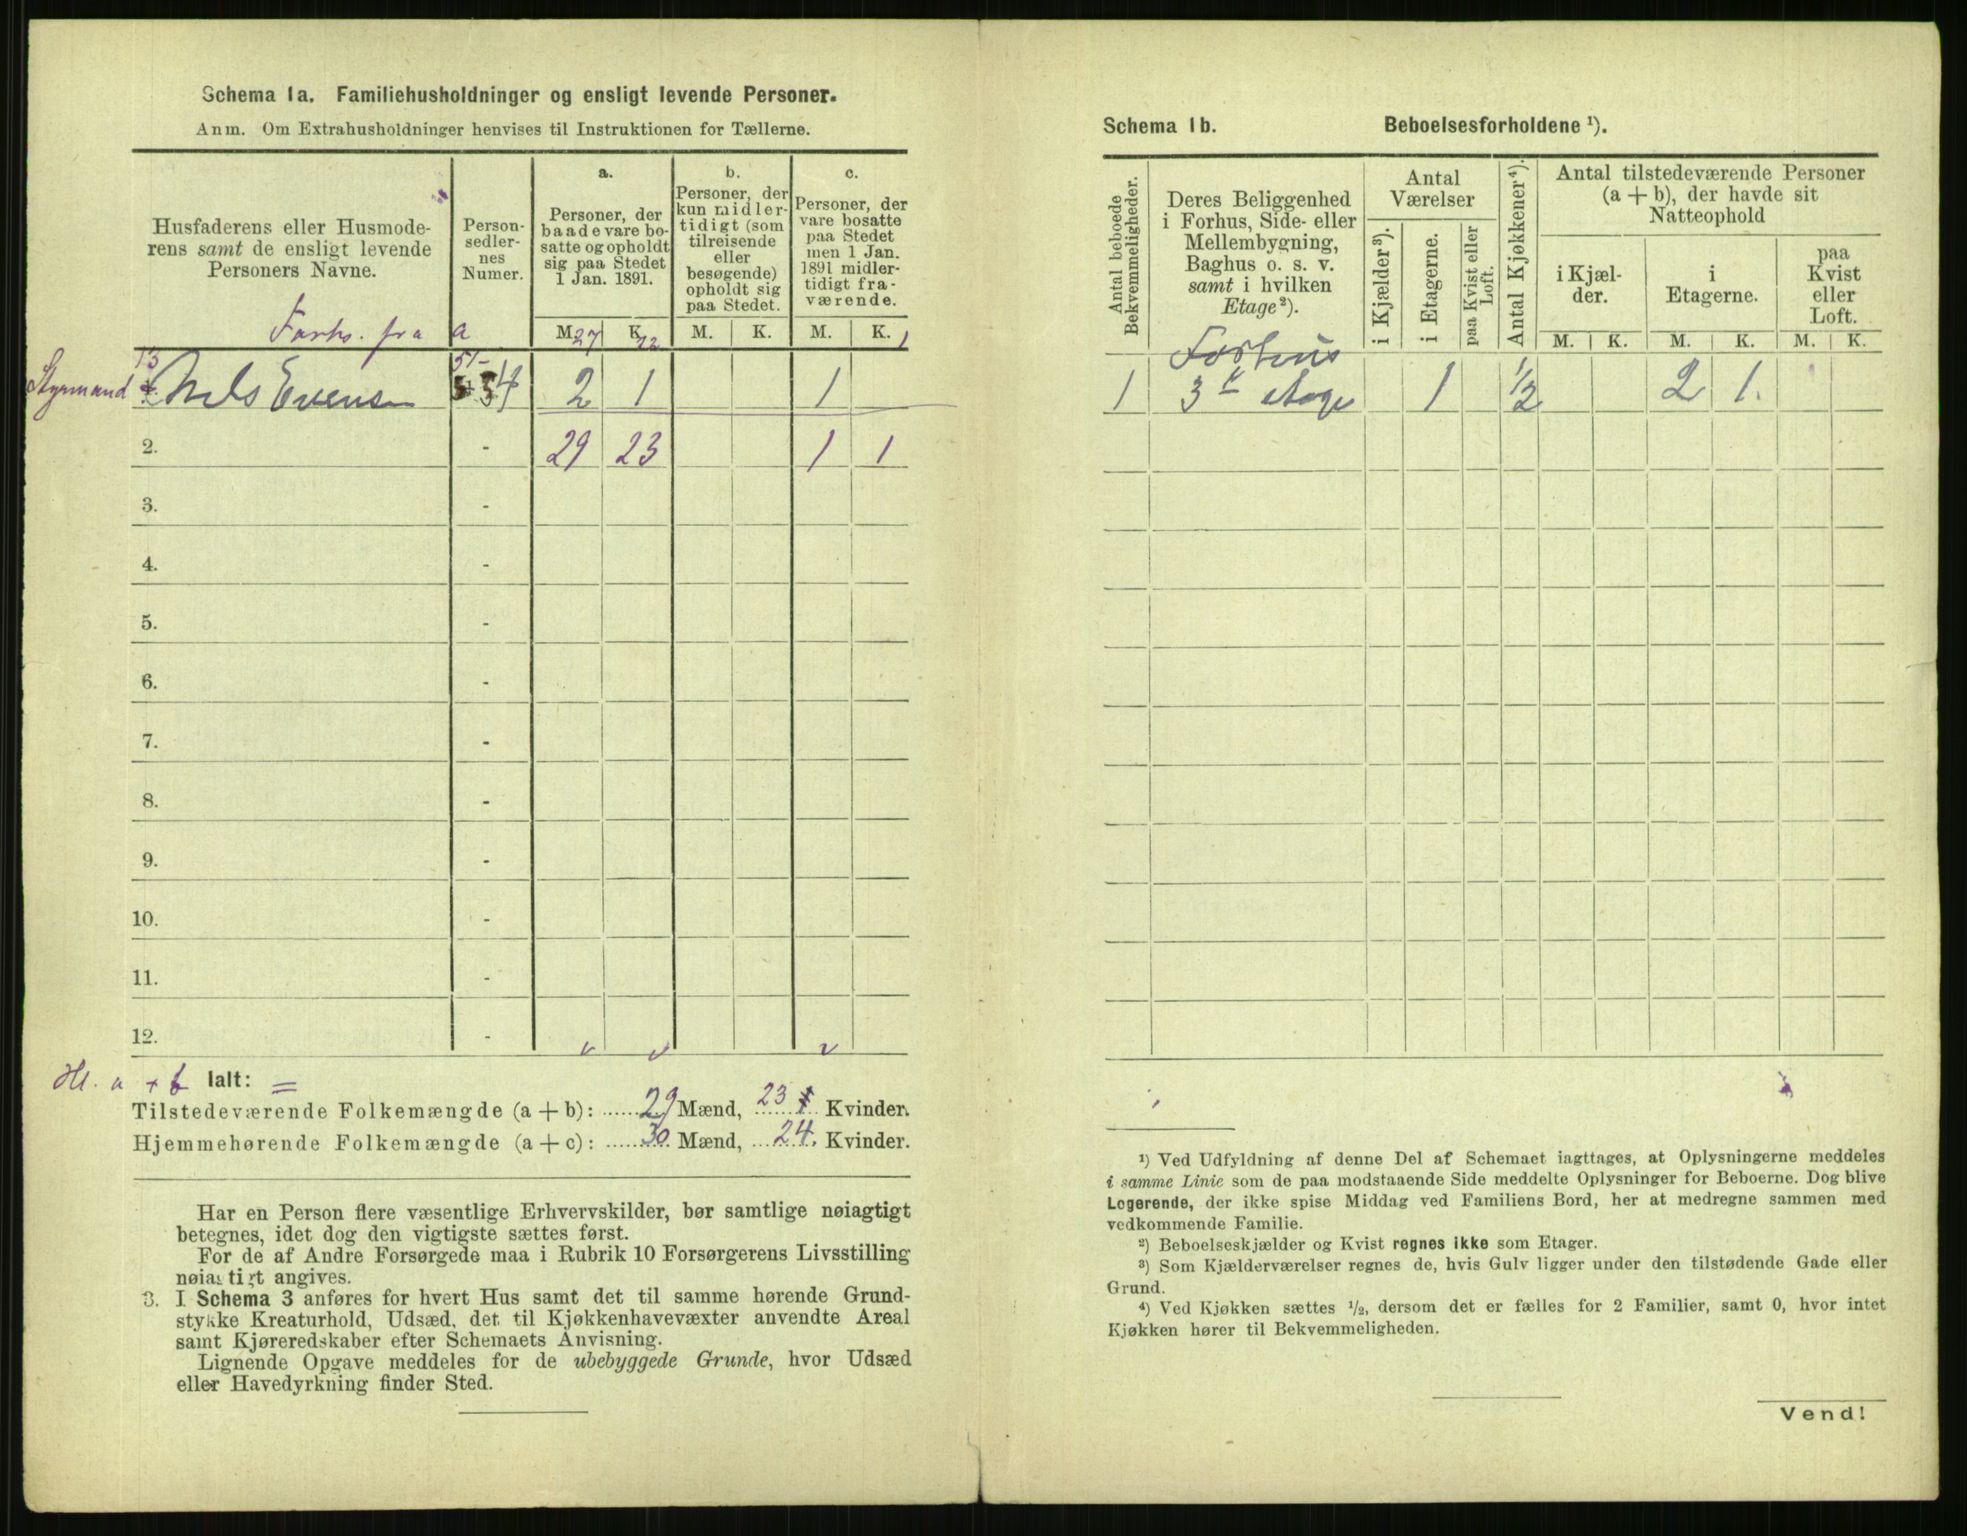 Schema 1a. Familiehusholdninger og ensligt levende Personer.
Anm. Om Extrahusholdninger henvises til Instruktionen for Tællerne.
Husfaderens eller Husmode-
rens samt de ensligt levende
Personers Navne.
Person-
sedler-
nes
Numer.
a.
Personer, der
baade vare bo-
satte og opholdt
sig paa Stedet
1 Jan. 1891.
b.
Personer, der
kun midler-
tidigt (som
tilreisende
eller
besøgende)
opholdt sig
paa Stedet.
c.
Personer, der
vare bosatte
paa Stedet
men 1 Jan.
1891 midler-
tidigt fra-
værende.
M. K. M. K. M. K.
Forhs. fra a 27 22 1
Styrmand 13 Nels Evensen 51 - 54 2 1 1
2. - 29 23 1 1
3. -
4. -
5. -
6. -
7. -
8. -
9. -
10. -
11. -
12. -
a + b Ialt: =
Tilstedeværende Folkemængde (a + b): 29 Mænd, 23 Kvinder.
Hjemmehørende Folkemængde (a + c): 30 Mænd, 24. Kvinder.
Har en Person flere væsentlige Erhvervskilder, bør samtlige nøiagtigt
betegnes, idet dog den vigtigste sættes først.
For de af Andre Forsørgede maa i Rubrik 10 Forsørgerens Livsstilling
nøiagtigt angives.
3. I Schema 3 anføres for hvert Hus samt det til samme hørende Grund-
stykke Kreaturhold, Udsæd, det til Kjøkkenhavevæxter anvendte Areal
samt Kjøreredskaber efter Schemaets Anvisning.
Lignende Opgave meddeles for de ubebyggede Grunde, hvor Udsæd
eller Havedyrkning finder Sted.
Schema 1b. Beboelsesforholdene ¹).
Antal beboede
Bekvemmeligheder.
Deres Beliggenhed
i Forhus, Side- eller
Mellembygning,
Baghus o. s. v.
samt i hvilken
Etage²).
Antal
Værelser
i Kjælder³).
i Etagerne.
paa Kvist eller
Loft.
Antal Kjøkkener⁴).
Antal tilstedeværende Personer
(a + b), der havde sit
Natteophold
i Kjæl-
der.
i
Etagerne.
paa
Kvist
eller
Loft.
M. K. M. K. M. K.
Forhus
1 3die Etage 1 1/2 2 1.
¹) Ved Udfyldning af denne Del af Schemaet iagttages, at Oplysningerne meddeles
i samme Linie som de paa modstaaende Side meddelte Oplysninger for Beboerne. Dog blive
Logerende, der ikke spise Middag ved Familiens Bord, her at medregne sammen med
vedkommende Familie.
²) Beboelseskjælder og Kvist regnes ikke som Etager.
³) Som Kjælderværelser regnes de, hvis Gulv ligger under den tilstødende Gade eller
Grund.
⁴) Ved Kjøkken sættes ½, dersom det er fælles for 2 Familier, samt 0, hvor intet
Kjøkken hører til Bekvemmeligheden.
Vend!